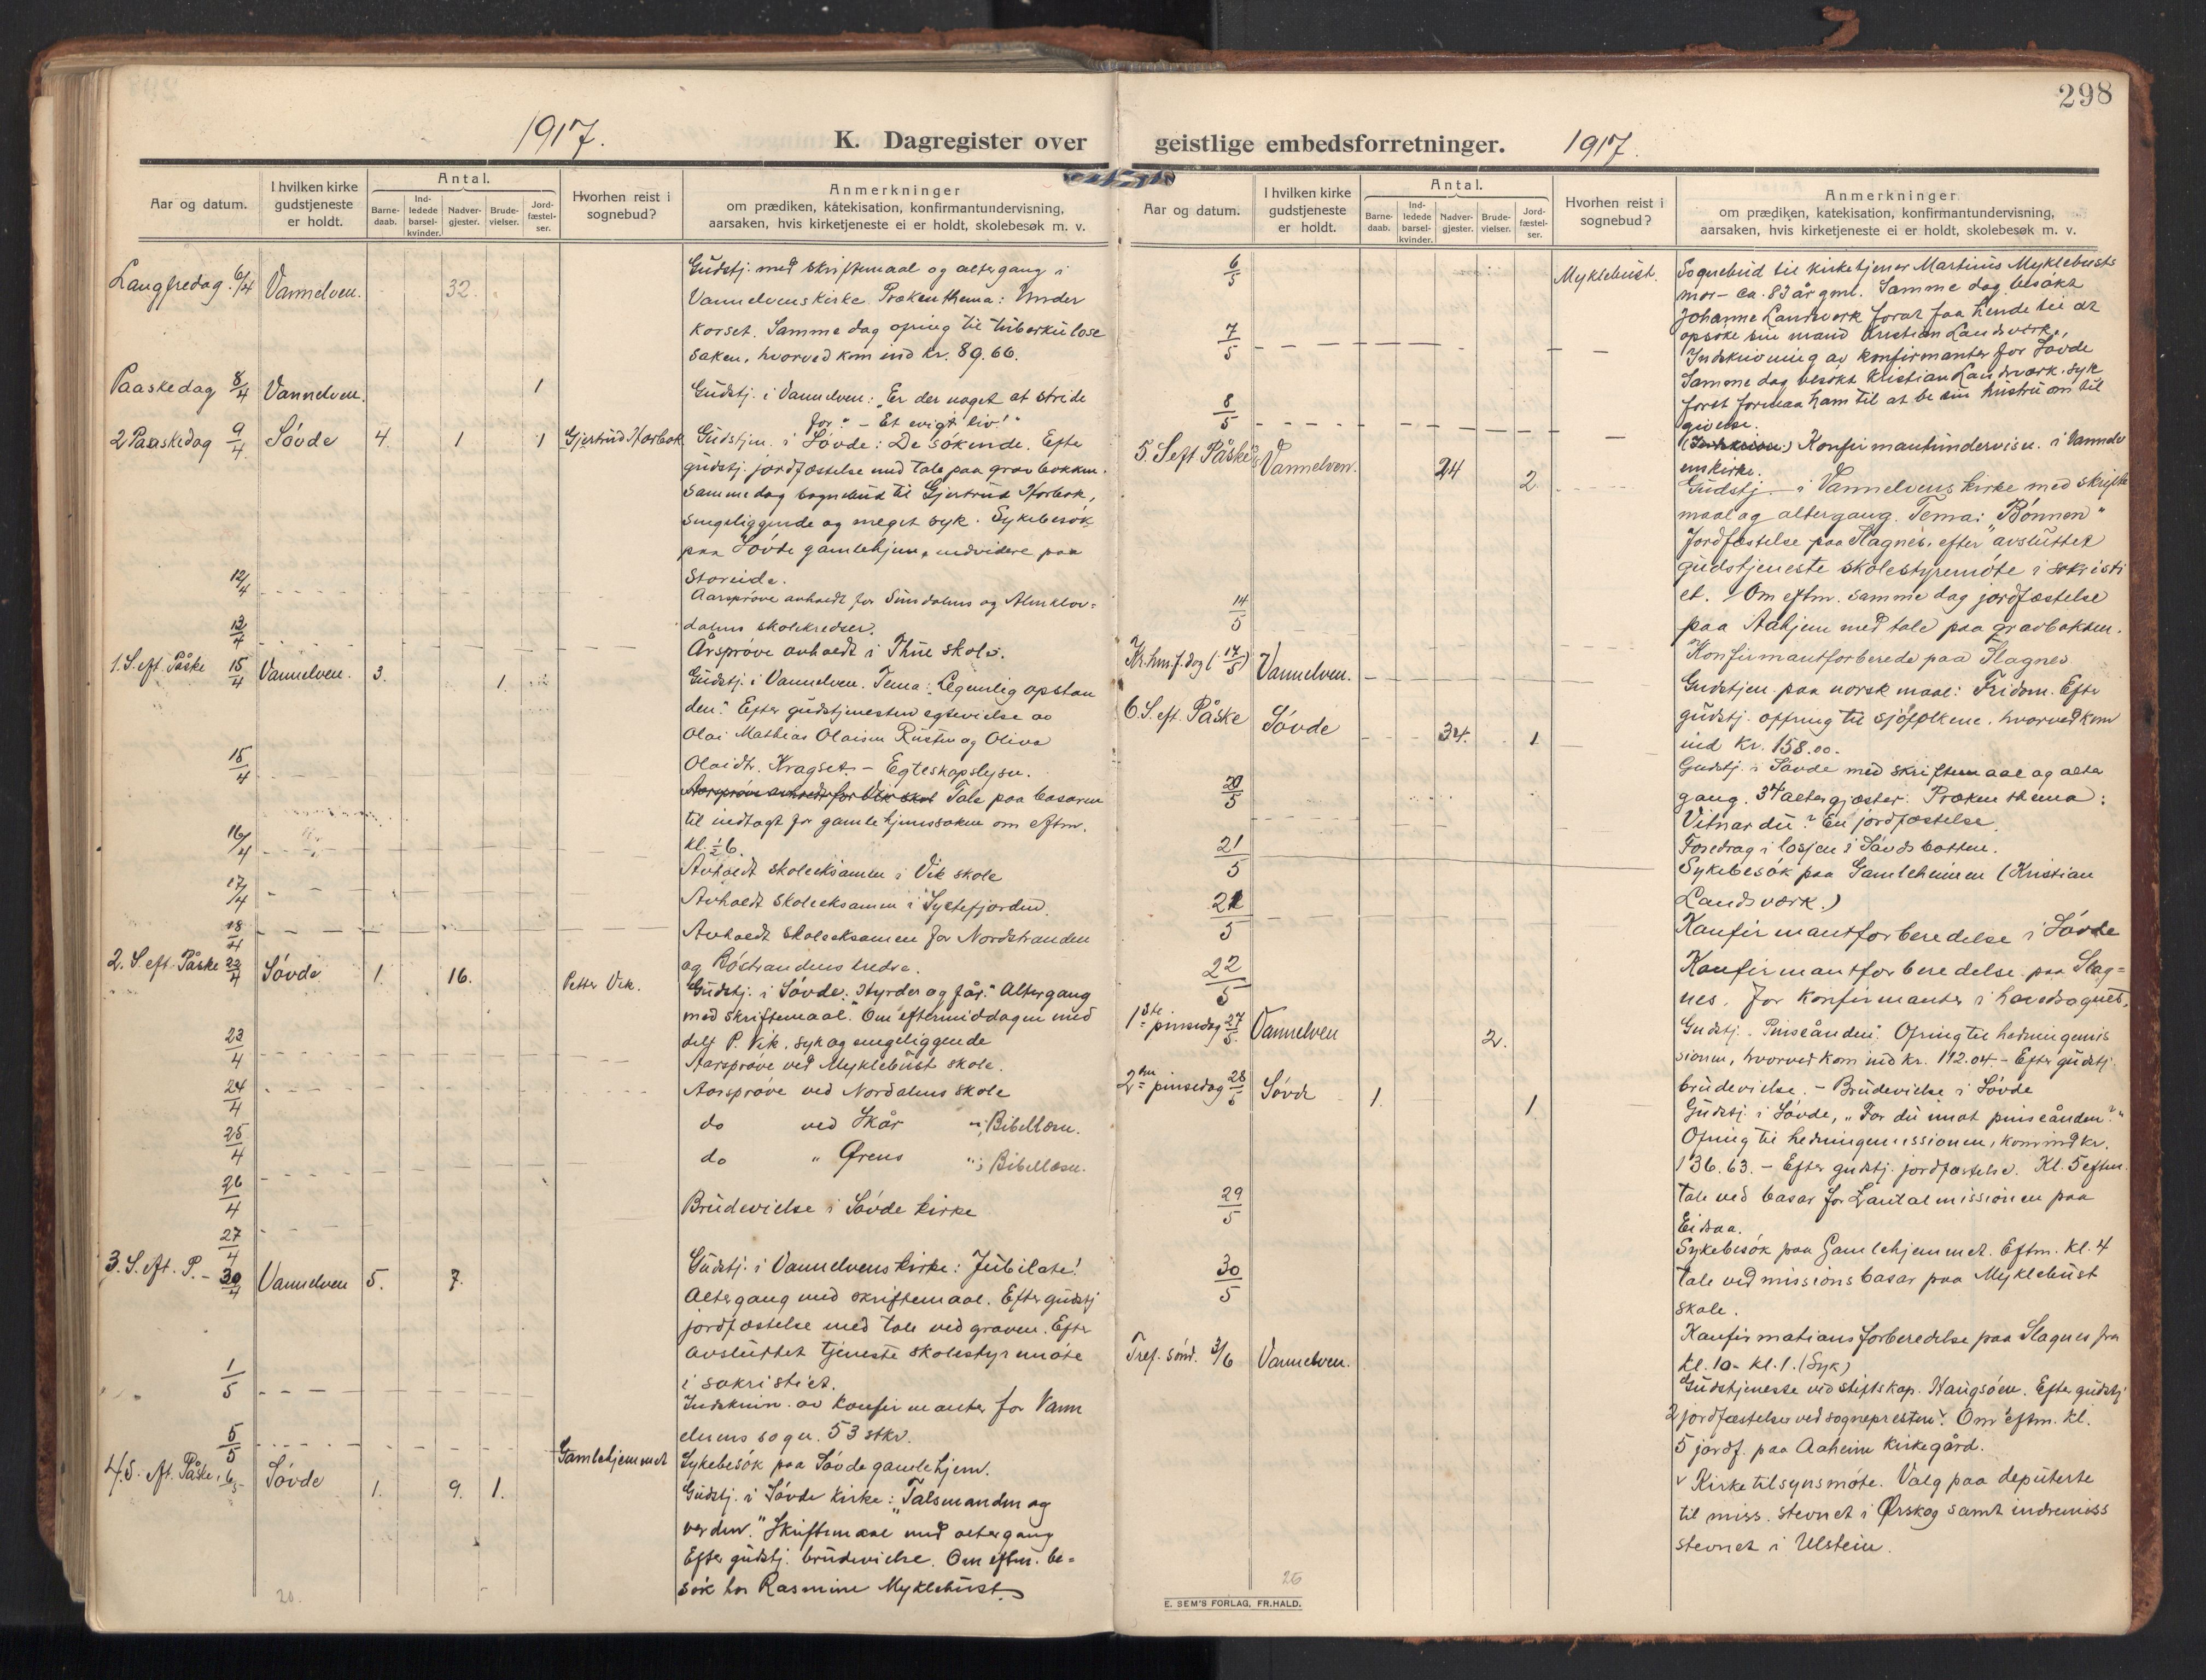 298
1917.
K. Dagregister over
Aar og datum.
I hvilken kirke
gudstjeneste
er holdt.
Antal.
Barne-
daab.
Ind-
ledede
barsel-
kvinder.
Nadver-
gjester.
Brude-
vielser.
Jord-
fæstel-
ser.
Hvorhen reist i
sognebud?
Anmerkninger
om prædiken, katekisation, konfirmantundervisning,
aarsaken, hvis kirketjeneste ei er holdt, skolebesøk m. v.
Langfredag 6/4 Vannelven. 32. Gudstj. med skriftemaal og altergang i
Vannelvens kirke. Prækenthema: Under
korset. Samme dag ofring til tuberkulose
saken, hvorved kom ind kr. 89.66.
Paaskedag 8/4 Vannelven. 1 Gudstj. i Vannelven: "Er der noget at stride
for." - Et evigt liv!"
2 Paaskedag 9/4 Søvde 4. 1 1 Gjertrud Horbok Gudstjen. i Søvde: De søkende. Efte
gudstj. jordfæstelse med tale paa gravbakken.
Samme dag sognebud til Gjertrud Horbok,
sengeliggende og meget syk. Sykebesøk
paa Søvde gamlehjem, endvidere paa
Storeide.
12/4 Aarsprøve avholdt for Sundalens og Almklov-
dalens skolekredser.
13/4 Årsprøve avholdt i Thue skole.
1. S. eft. Påske 15/4 Vannelven. 3. 1. Gudstj. i Vannelven. Tema: Legemlig opstan
den." Efter gudstjenesten egtevielse av
Olai Mathias Olaisen Rusten og Oliva
Olaidtr. Kragset. - Egteskapslysn.
15/4 Tale paa basaren
til indtægt for gamlehjemssaken om eftm.
kl. ½ 6.
16/4 Avholdt skoleeksamen i Vik skole
17/4 Avholdt skoleeksamen i Syltefjorden.
18/4 Avholdt skoleeksamen for Nordstranden
og Røstrandens kredse.
2. S. eft. Påske 22/4 Søvde 1. 16. Petter Vik. Gudstj. i Søvde: "Hyrder og får." Altergang
med skriftemaal. Om eftermiddagen med
delt P. Vik, syk og sengeliggende
23/4 Aarsprøve ved Myklebust skole.
24/4 Aarsprøve ved Nordalens skole
25/4 do ved Skår "; Bibellæsn.
26/4 do " Ørens "; Bibellæsn.
27/4 Brudevielse i Søvde kirke
3. S. eft. P. - 30/4 Vannelven 5. 7. Gudstj. i Vannelvens kirke: Jubilate!
Altergang med skriftemaal. Efter gudstj
jordfæstelse med tale ved graven. Efter
avsluttet tjeneste skolestyremøte
i sakristiet.
1/5 Indskrivn. av konfirmanter for Vann
elvens sogn. 53 stkr.
5/5 Gamlehjemmet Sykebesøk paa Søvde gamlehjem.
4. S. eft. Påske, 6/5 Søvde 1. 9. 1. Gudstj. i Søvde kirke: "Talsmanden og
verden." Skriftemaal med altergang
Efter gudstj. brudevielse. Om eftm. be-
søk hos Rasmine Myklebust.
20.
geistlige embedsforretninger. 1917.
Aar og datum.
I hvilken kirke
gudstjeneste
er holdt.
Antal.
Barne-
daab.
Ind-
ledede
barsel-
kvinder.
Nadver-
gjester.
Brude-
vielser.
Jord-
fæstel-
ser.
Hvorhen reist i
sognebud?
Anmerkninger
om prædiken, katekisation, konfirmantundervisning,
aarsaken, hvis kirketjeneste ei er holdt, skolebesøk m. v.
6/5 Myklebust. Sognebud til kirketjener Martinus Myklebusts
mor - ca. 83 år gml. Samme dag besøkt
Johanne Landsverk forat faa hende til at
opsøke sin mand Kristian Landsværk,
7/5 Indskrivning av konfirmanter for Søvde
Samme dag besøkt Kristian Landsværk, syk
forat formaa ham til at be sin hustru om til
givelse.
8/5 Konfirmantundervisn. i Vannelv
enskirke.
5. S. eft. Påske Vannelven. 24 2. Gudstj. i Vannelvens kirke med skrifte
maal og altergang. Tema: "Bønnen"
Jordfæstelse paa Slagnes, efter avsluttet
gudstjeneste skolestyremøte i sakristi
et. Om eftm. samme dag jordfæstelse
paa Aahjem med tale paa gravbakken.
14/5 Konfirmantforberede paa Slagnes.
Kr. hm. f. dag (17/5) Vannelven. Gudstjen. paa norsk maal: Fridom. Efte
gudstj. offring til sjøfolkene, hvorved kom
ind kr. 158.00.
6. S. eft. Påske Søvde 34. 1 Gudstj. i Søvde med skriftemaal og alter
gang. 34 altergjæster. Prækenthema:
Vitnar du? En jordfæstelse.
20/5 Foredrag i losjen i Søvdsbotten.
21/5 Sykebesøk paa Gamleheimen (Kristian
Landsværk.)
21/5 Konfirmantforberedelse i Søvde
22/5 Konfirmantforberedelse paa Slag-
nes, for konfirmanter i hovedsognet.
1ste pinsedag 27/5. Vannelven 2. Gudstj. Pinseånden". Ofring til hedningemis
sionen, hvorved kom ind kr. 112.04 - Efter gudstj.
brudevielse. - Brudevielse i Søvde
2den pinsedag 28/5 Søvde 1. 1. Gudstj. i Søvde, "Tar du imot pinseånden?"
Ofring til hedningemissionen, kom ind kr.
136.63. - Efter gudstj. jordfæstelse. Kl. 5 eftm.
tale ved basar for Santalmissionen paa
Eidsaa.
29/5 Sykebesøk paa Gamlehjemmet. Eftm. kl. 4
tale ved missionsbasar paa Myklebust
skole.
30/5 Konfirmationsforberedelse paa Slagnes fra
kl. 10 - kl. 1. (Syk)
Tref. sønd. 3/6 Vannelven. Gudstjeneste ved stiftskap. Haugsøen. Efter gudstj
2 jordfæstelser ved sognepresten v. Om eftm. kl.
5 jordf. paa Aaheim kirkegård.
v Kirketilsynsmøte. Valg paa deputerte
til miss. stevnet i Ørskog samt indremiss
stevnet i Ulstein.
26
E. SEM'S FORLAG, FR.HALD.